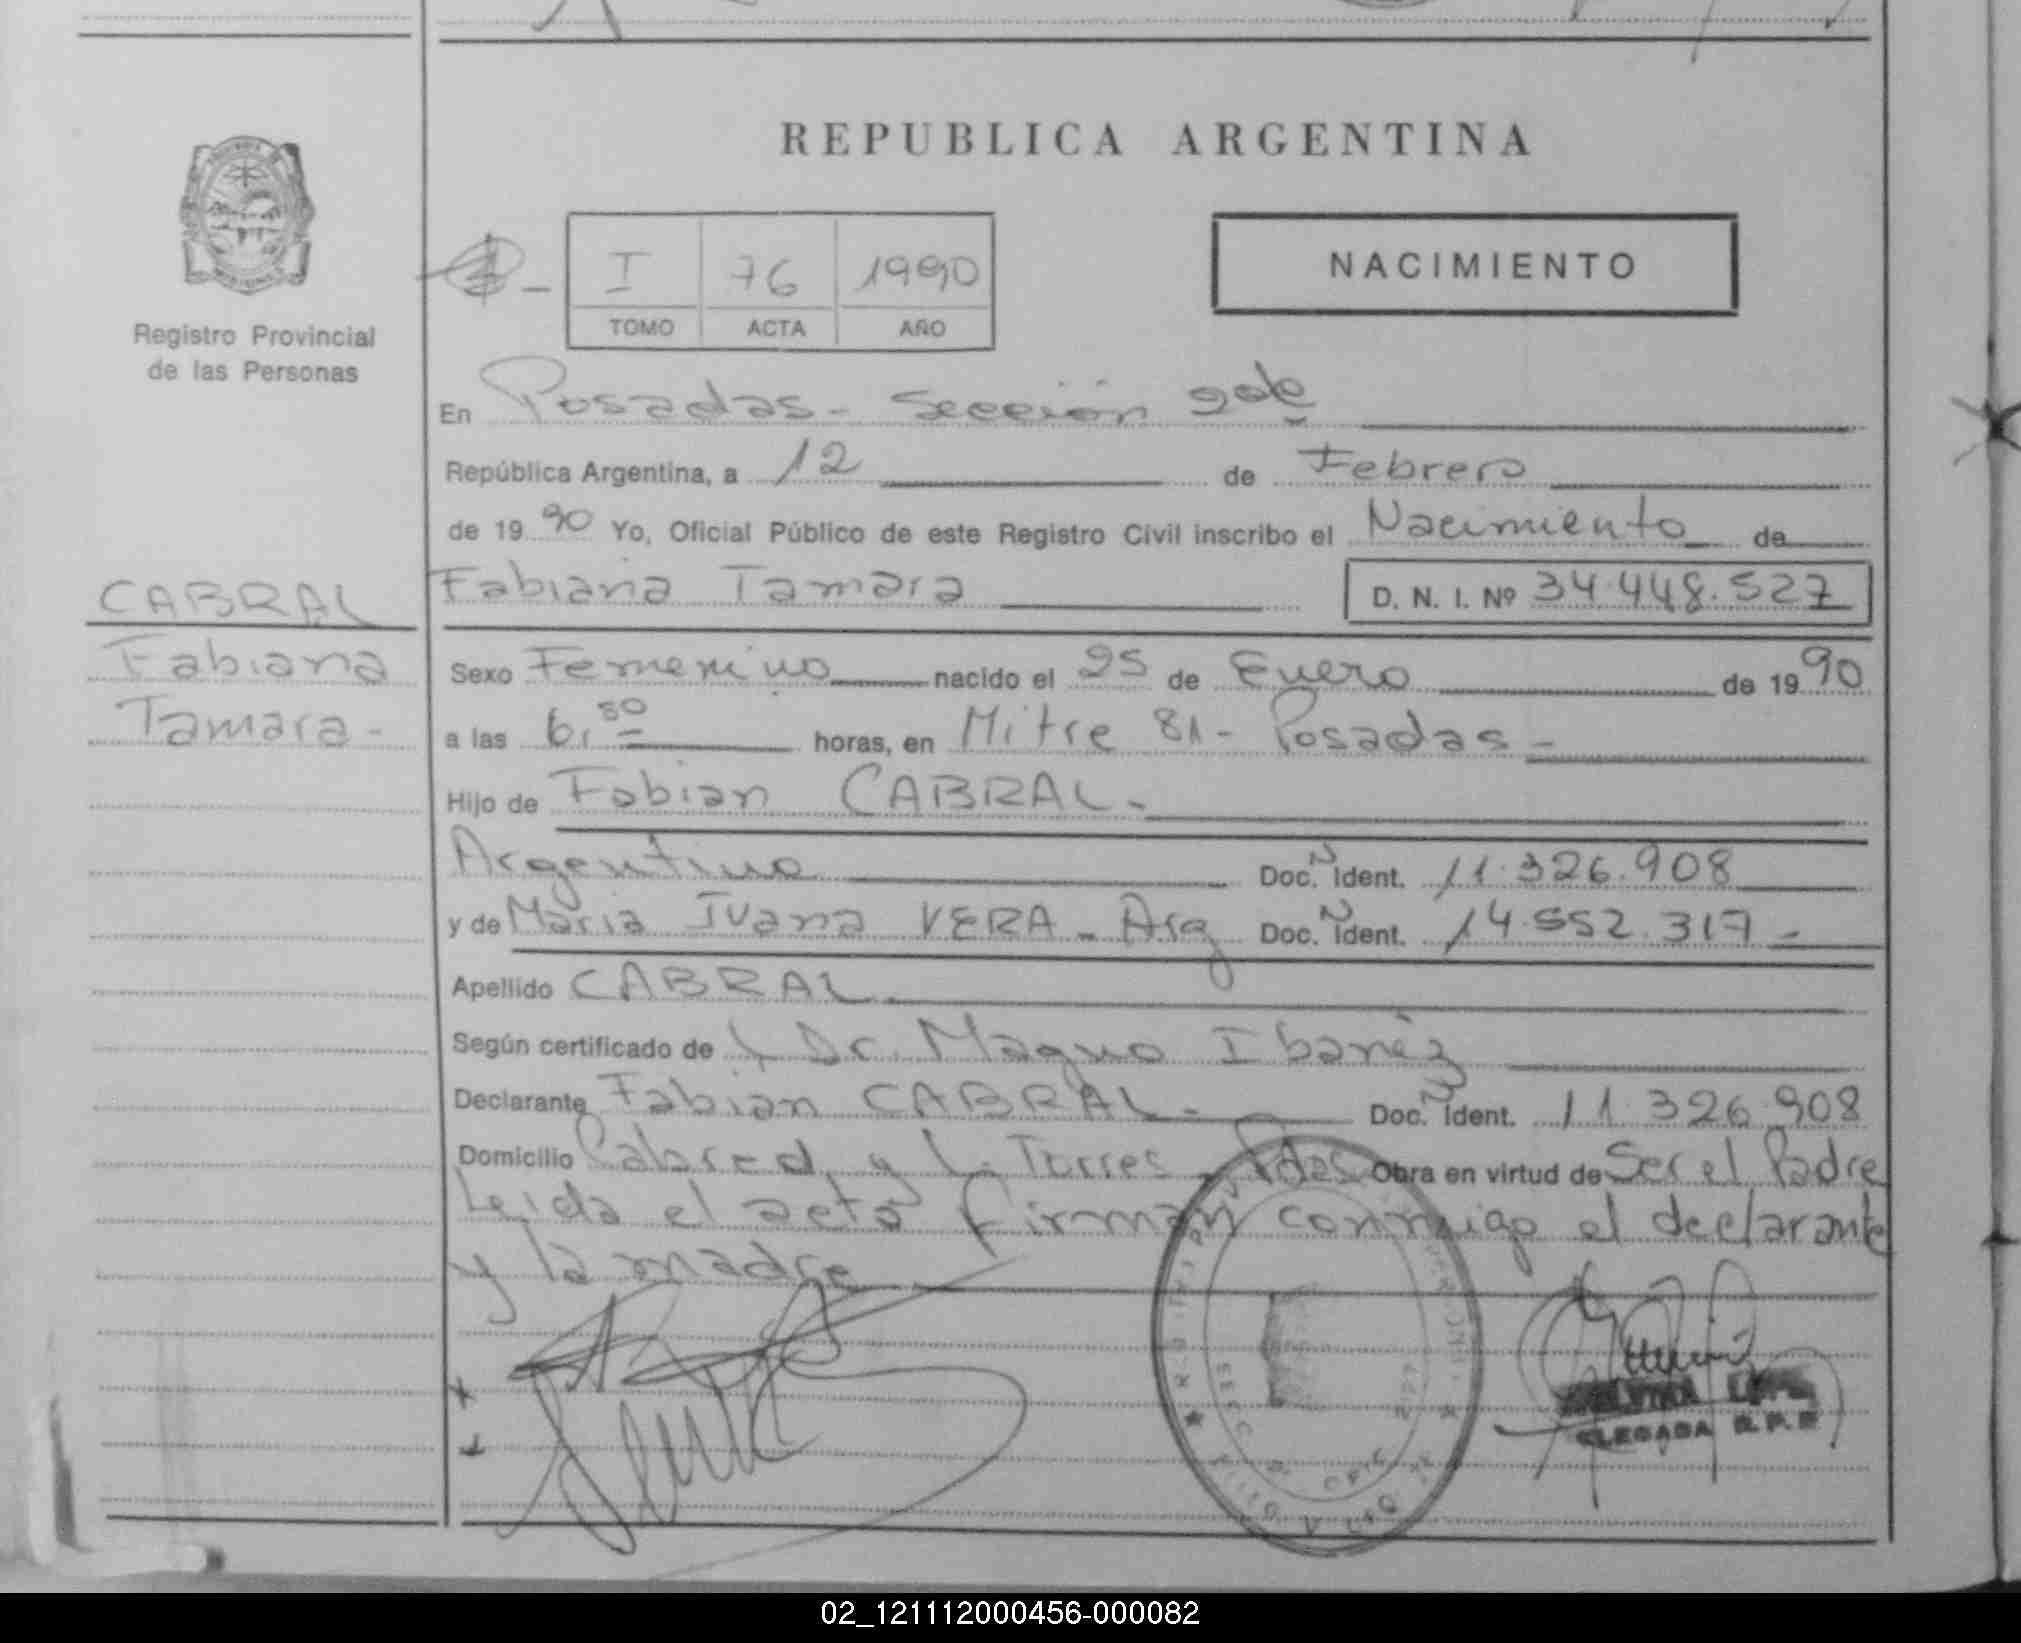 REPUBLICA ARGENTINA
I 76 1990
TOMO ACTA AÑO
NACIMIENTO
Registro Provincial
de las Personas
En Posadas - Sección 2da
República Argentina, a 12 de Febrero
de 1990 Yo, Oficial Público de este Registro Civil inscribo el Nacimiento de
Fabiana Tamara D. N. I. Nº 34.448.527
CABRAL
Fabiana
Tamara -
Sexo Femenino nacido el 25 de Enero de 1990
a las 6,30 horas, en Mitre 81 - Posadas -
Hijo de Fabian CABRAL -
Argentino Doc. N Ident. 11.326.908
y de Maria Ivana VERA - Arg Doc. N Ident. 14.552.317 -
Apellido CABRAL
Según certificado de Dr. Magno Ibañez
Declarante Fabian CABRAL - Doc. N Ident. 11.326.908
Domicilio Cabred y L. Torres - Pdas Obra en virtud de Ser el Padre
Leida el acta firman conmigo el declarante
y la madre
02_121112000456-000082